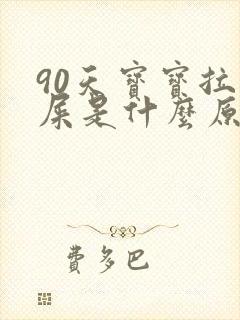 90天寶寶拉
屎是什麼原
費多巴